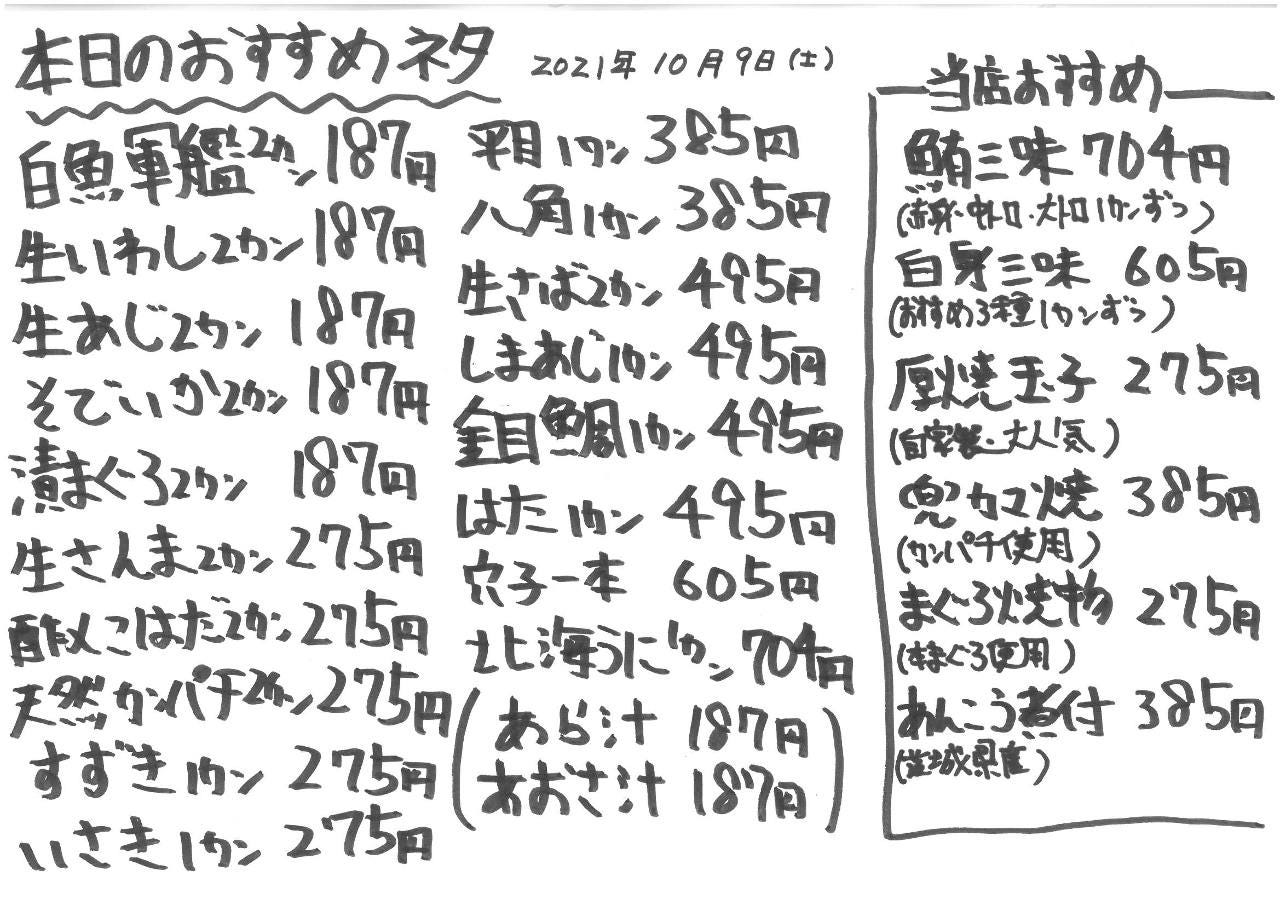 本日のおすすめネタ
2021年10月9日(土)
白魚軍艦2カン 187円
生いわし2カン 187円
生あじ2カン 187円
そでいか2カン 187円
漬まぐろ2カン 187円
生さんま2カン 275円
酢〆こはだ2カン 275円
天然カンパチ2カン 275円
すずき1カン 275円
いさき1カン 275円
平目1カン 385円
八角1カン 385円
生さば2カン 495円
しまあじ1カン 495円
金目鯛1カン 495円
はた1カン 495円
穴子一本 605円
北海うに1カン 704円
(あら汁 187円
あおさ汁 187円)
当店おすすめ
鮪三味 704円
(赤身・中トロ・大トロ1カンずつ)
白身三味 605円
(おすすめ3種1カンずつ)
厚焼玉子 275円
(自家製・大人気)
兜カマ焼 385円
(カンパチ使用)
まぐろ焼物 275円
(本まぐろ使用)
あんこう煮付 385円
(茨城県産)